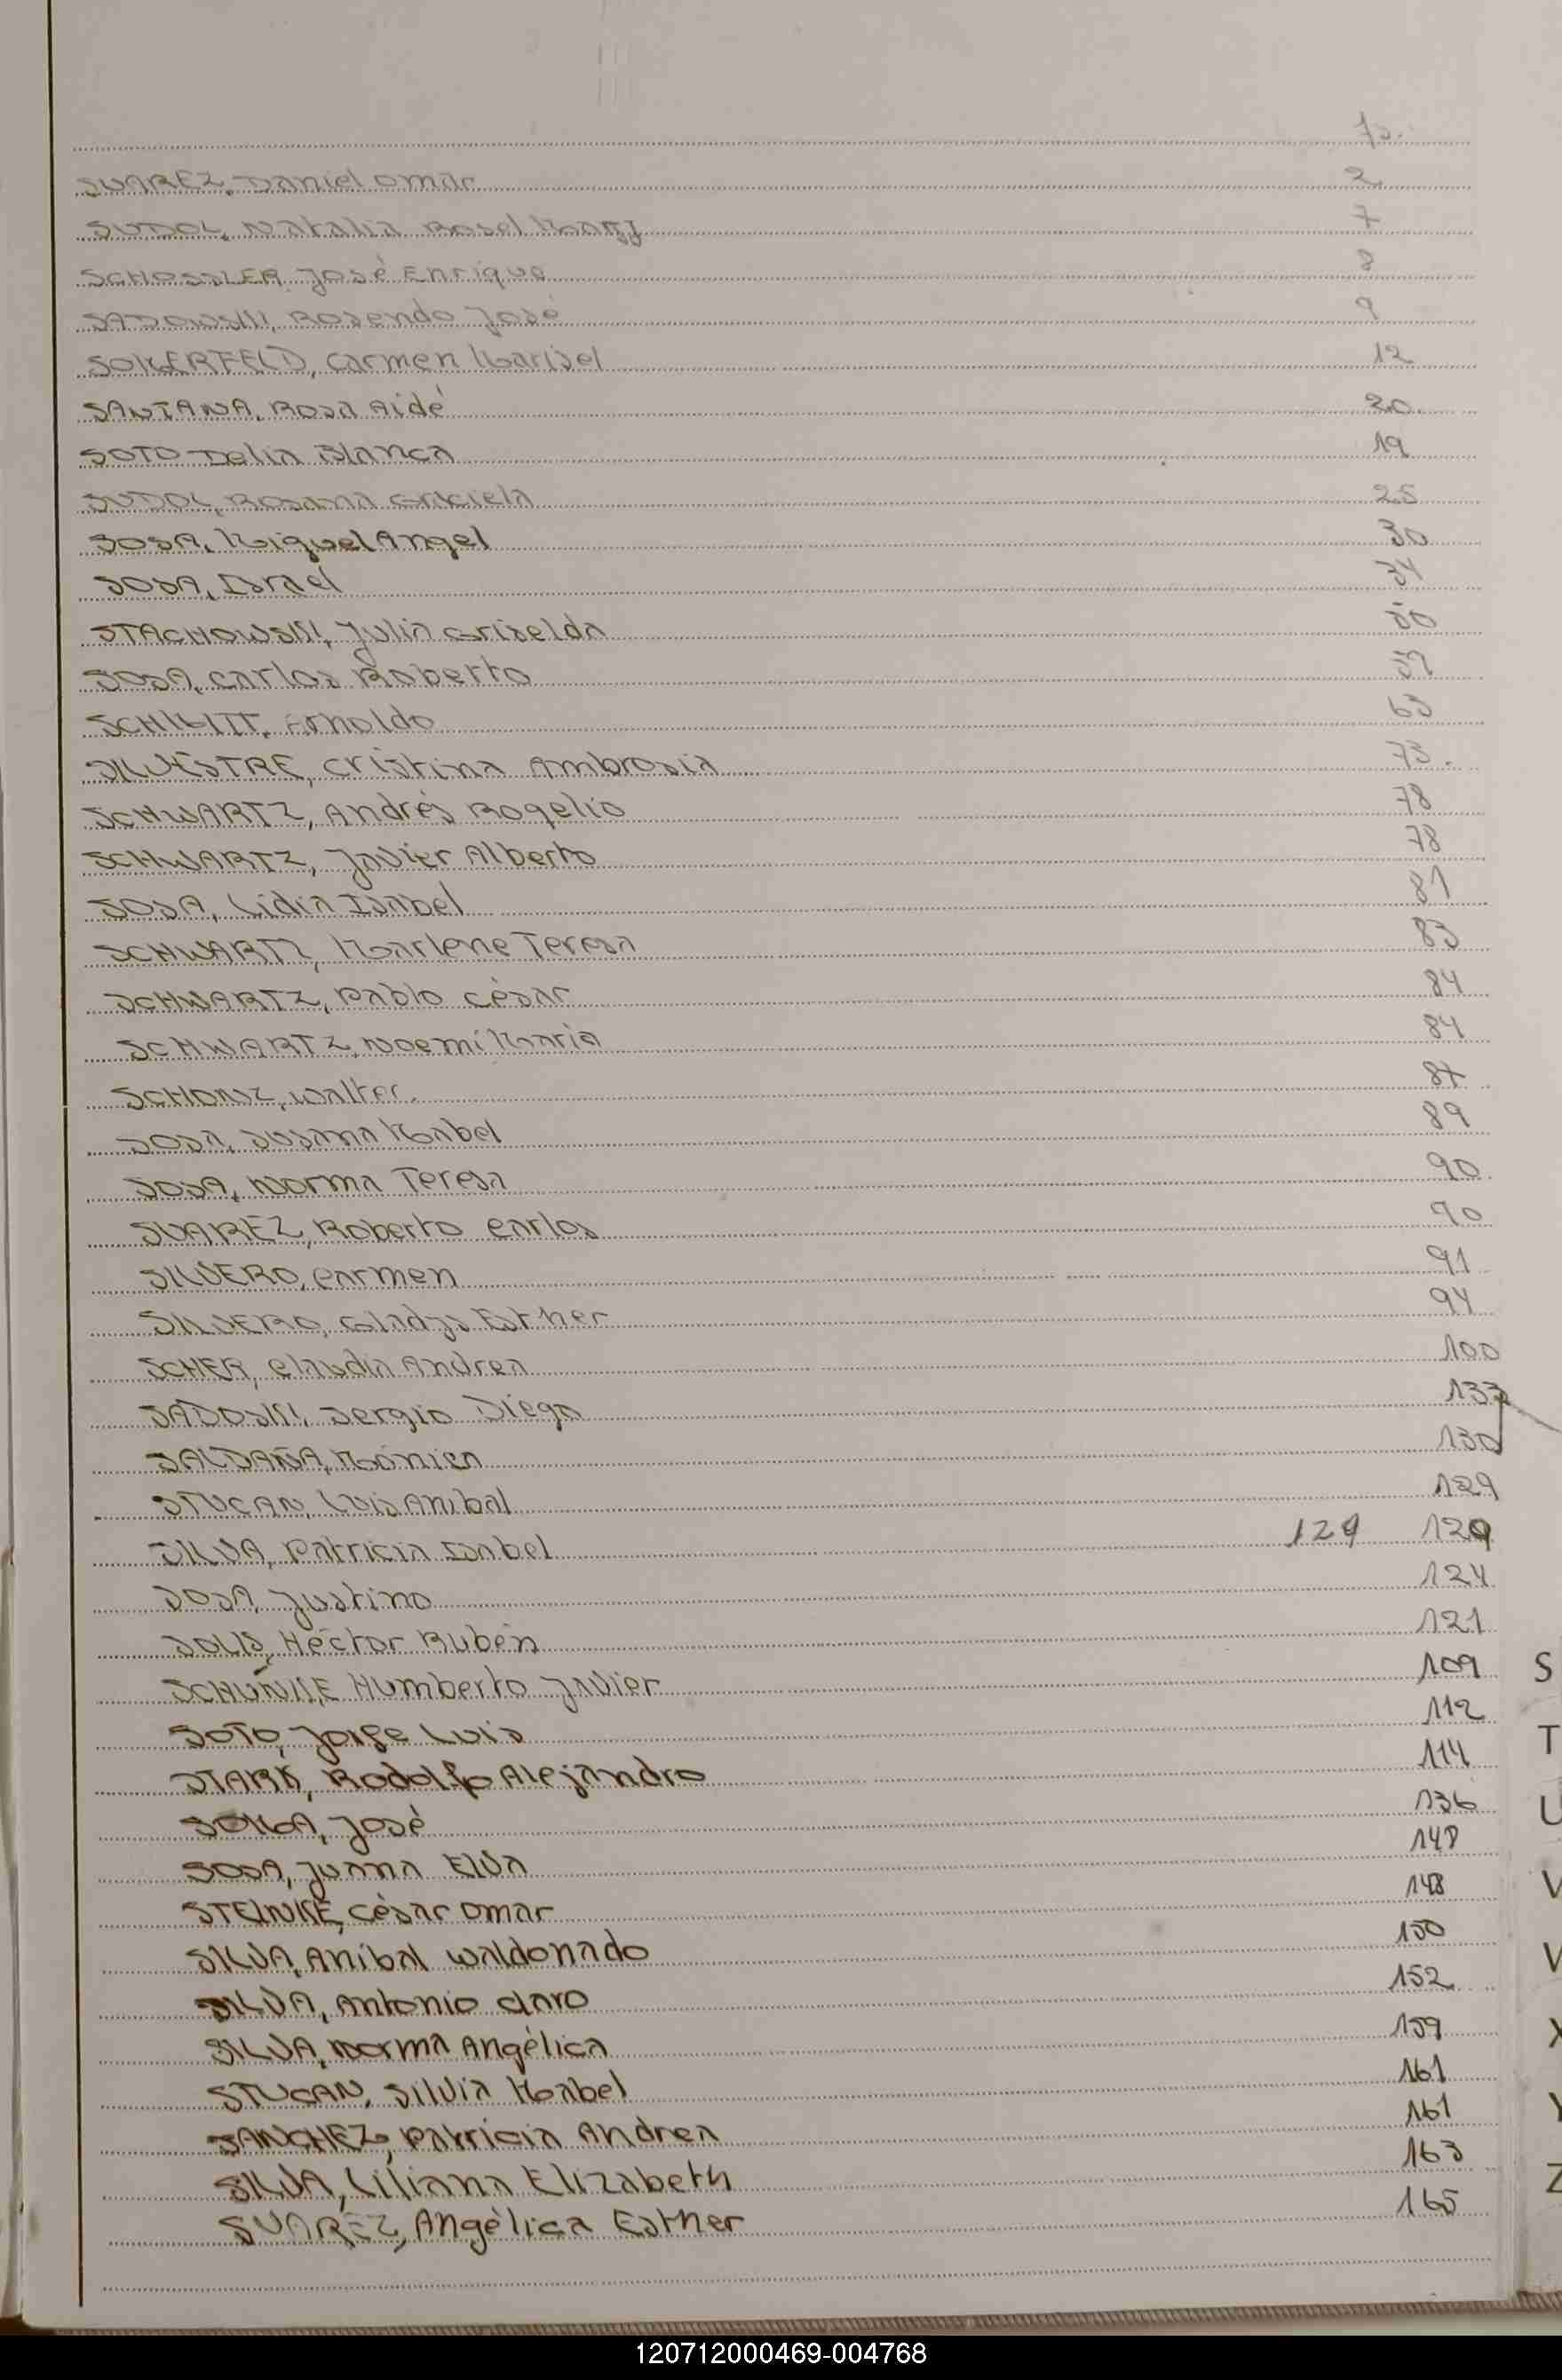 Fo.
SUAREZ, Daniel Omar 2
SUDOL, Natalia Rosel Mary 7
SCHOSSLER, José Enrique 8
SADOWSKI, Rosendo José 9
SOMERFELD, Carmen Marisel 12
SANTANA, Rosa Aidé 20.
SOTO Delia Blanca 19
SUDOL, Rosana Graciela 25
SOSA, Miguel Angel 30
SOSA, Israel 34
STACHOWSKI, Julia Griselda 50
SOSA, Carlos Roberto 59
SCHMITT, Arnoldo 63
SILVESTRE, Cristina Ambrosia 73.
SCHWARTZ, Andrés Rogelio 78
SCHWARTZ, Javier Alberto 78
SOSA, Lidia Isabel 81
SCHWARTZ, Marlene Teresa 83
SCHWARTZ, Pablo César 84
SCHWARTZ, Noemi Maria 84
SCHONZ, Walter. 87
SOSA, Susana Mabel 89
SOSA, Norma Teresa 90
SUAREZ, Roberto Carlos 90
SILVERO, Carmen 91
SILVERO, Gladys Esther 94
SCHER, Claudia Andrea 100
SADOSKI, Sergio Diego 133
SALDAÑA, Mónica 130
STUCAN, Luis Anibal 129
SILVA, Patricia Isabel 129 129
SOSA, Justino 124
SOLIS, Héctor Rubén 121
SCHUNKE Humberto Javier 109
S
SOTO, Jorge Luis 112
T
STARK, Rodolfo Alejandro 114
SOSA, José 136
U
SOSA, Juana Elva 148
V
STEINKE, César Omar 148
SILVA, Anibal Waldonado 150
SILVA, Antonio Claro 152
SILVA, Norma Angélica 159
X
STUCAN, Silvia Mabel 161
SANCHEZ, Patricia Andrea 161
Y
SILVA, Liliana Elizabeth 163
Z
SUAREZ, Angélica Esther 165
120712000469-004768